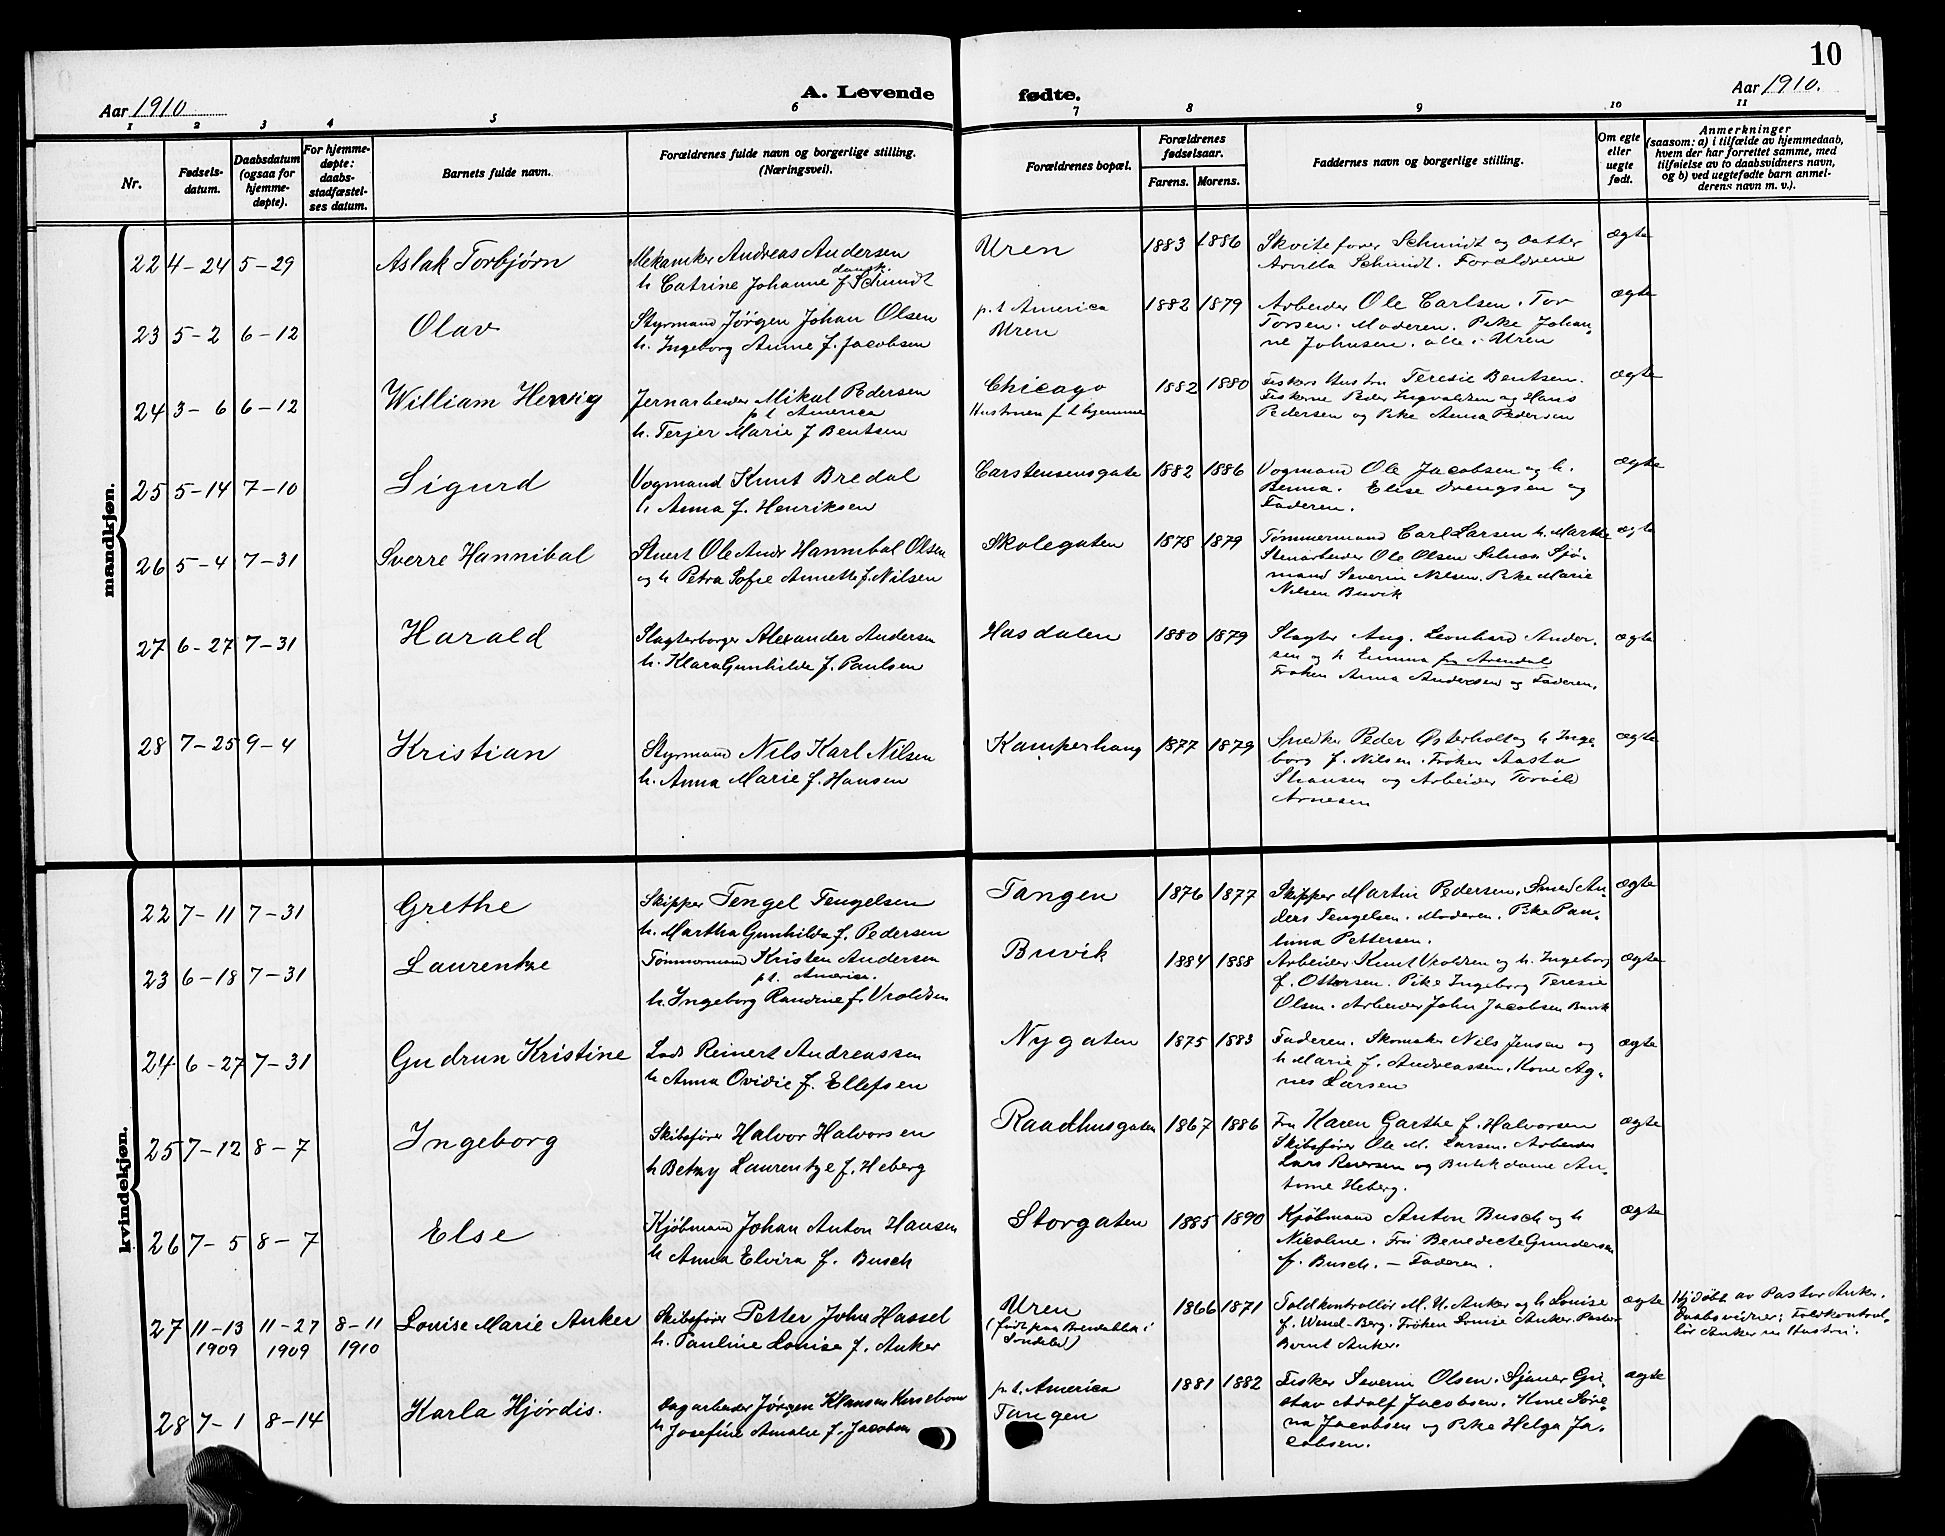 10
Aar 1910
A. Levende fødte.
Aar 1910.
1 2 3 4 5 6 7 8 9 10 11
Nr.
Fødsels-
datum.
Daabsdatum
(ogsaa for
hjemme-
døpte).
For hjemme-
døpte:
daabs-
stadfæstel-
ses datum.
Barnets fulde navn.
Forældrenes fulde navn og borgerlige stilling.
(Næringsvei).
Forældrenes bopæl.
Forældrenes
fødselsaar.
Farens. Morens.
Faddernes navn og borgerlige stilling.
Om egte
eller
uegte
født.
Anmerkninger
(saasom: a) i tilfælde av hjemmedaab,
hvem der har forrettet samme, med
tilføielse av to daabsvidners navn,
og b) ved uegtefødte barn anmel-
derens navn m. v.).
mandkjøn.
22 4-24 5-29 Aslak Torbjørn
Mekaniker Andreas Andersen
dansk.
h. Catrine Johanne f. Schmidt
Uren 1883 1886
Schmidt og datter
Arvilla Schmidt. Forældrene
ægte
23 5-2 6-12 Olav
Styrmand Jørgen Johan Olsen
h. Ingeborg Anne f. Jacobsen
p.t America
Uren
1882 1879
Arbeider Ole Carlsen. Tor
Torsen. Moderen. Pike Johan-
ne Johnsen. alle i Uren
ægte
24 3-6 6-12 William Hervig
Jernarbeider Mikal Pedersen
p.t. America
h. Terjer Marie f Bentsen
Chicago
Hustruen p t hjemme
1882 1880
Fiskers Hustru Teresie Bentsen.
Fiskerne Peder Ingvaldsen og Hans
Pedersen og Pike Anna Pedersen
ægte
25 5-14 7-10 Sigurd
Vogmand Knut Bredal
h Anna f. Henriksen
Carstensensgate 1882 1886
Vogmand Ole Jacobsen og h.
Benna. Elise Drengsen og
Faderen.
ægte
26 5-4 7-31 Sverre Hannibal
Stuert Ole Andr Hannibal Olsen
og h Petra Sofie Annette f. Nilsen
Skolegaten 1878 1879
Tømmermand Carl Larsen h. Marthe
Stenarbeider Ole Olsen Sjø-
mand Severin Nilsen. Pike Marie
Nilsen Buvik
ægte
27 6-27 7-31 Harald
Slagterborger Alexander Andersen
h. Klara Gunhilde f. Paulsen
Hasdalen 1880 1879
Slagter Aug. Leonhard Ander-
sen og h Emma fra Arendal
Frøken Anna Andersen og Faderen.
ægte
28 7-25 9-4 Kristian
Styrmand Nils Karl Nilsen
h. Anna Marie f. Hansen
Kamperhaug 1877 1879
Snedker Peder Østerholt og h Inge-
borg f. Nilsen. Frøken Aasta
og Arbeider Torvild
Arnesen
ægte
kvindekjøn.
22 7-11 7-31 Grethe
Skipper Tengel Tengelsen
h. Martha Gunhilde f. Pedersen
Tangen 1876 1877
Skipper Martin Pedersen. Smed An-
ders Tengelsen. Moderen. Pike Pau-
lina Pettersen.
ægte
23 6-18 7-31 Laurentze
Tømmermand Kristen Andersen
p.t. America.
h. Ingeborg Randine f. Vroldsen
Buvik 1884 1888
Arbeider Knut Vroldsen og h. Ingeborg
f. Ottersen. Pike Ingeborg Teresie
Olsen. Arbeider John Jacobsen Buvik
ægte
24 6-27 7-31 Gudrun Kristine
Lods Reinert Andreassen
h Anna Ovidie f. Ellefsen
Nygaten 1875 1883
Faderen. Skomaker Nils Jensen og
h Marie f. Andreassen. Kone Ag-
nes Larsen
ægte
25 7-12 8-7 Ingeborg
Skibsfører Halvor Halvorsen
h Betzy Laurentze f. Heberg
Raadhusgaten 1867 1886
Fru Karen Garthe f. Halvorsen
Skibsfører Ole M. Larsen. Arbeider
Lars Reiersen og Butikdame An-
tonie Heberg.
ægte
26 7-5 8-7 Else
Kjøbmand Johan Anton Hansen
h Anna Elvira f. Busch
Storgaten 1885 1890
Kjøbmand Anton Busch og h
Nicoline. Fru Benedicte Gundersen
f. Busch. - Faderen.
ægte
27 11-13 11-27 8-11
1909 1909 1910
Louise Marie Anker
Skibsfører Petter John Hassel
h. Pauline Louise f. Anker
Uren
(født paa i
Søndeled)
1866 1871
Toldkontrollør M. U. Anker og h Louise
f. Wend-Berg. Frøken Louise Anker. Pastor
Bernt Anker.
ægte
Hjdøbt av Pastor Anker.
Daabsvidner: Toldkontrol-
lør Anker m Hustru.
28 7-1 8-14 Karla Hjørdis.
Dagarbeider Jørgen Klausen Kirsebom
h Josefine Amalie f. Jacobsen
p. t. America
Tangen
1881 1882
Fisker Severin Olsen. Sjaner Gu-
stav Adolf Jacobsen. Kone Søre-
na Jacobsen og Pike Helga Ja-
cobsen.
ægte